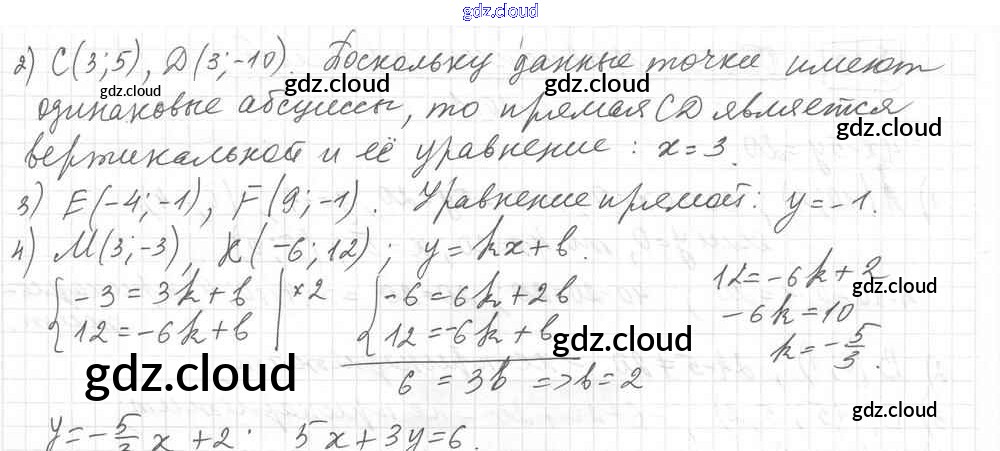 gdz.cloud
2) C(3;5), D(3;-10). Поскольку данные точки имеют
gdz.cloud
одинаковые абсциссы, то прямая CD является
gdz.cloud
вертикальной и её уравнение: x=3.
gdz.cloud gdz.cloud
3) E(-4;-1), F(9;-1). Уравнение прямой: y=-1.
4) M(3;-3), K(-6;12); y=kx+b.
{-3=3k+b | ×2 {-6=6k+2b 12=-6k+2
gdz.cloud
{12=-6k+b | {12=-6k+b -6k=10
gdz.cloud gdz.cloud
6=3b => b=2 k=-5/3.
gdz.cloud
y=-5/3x+2. 5x+3y=6.